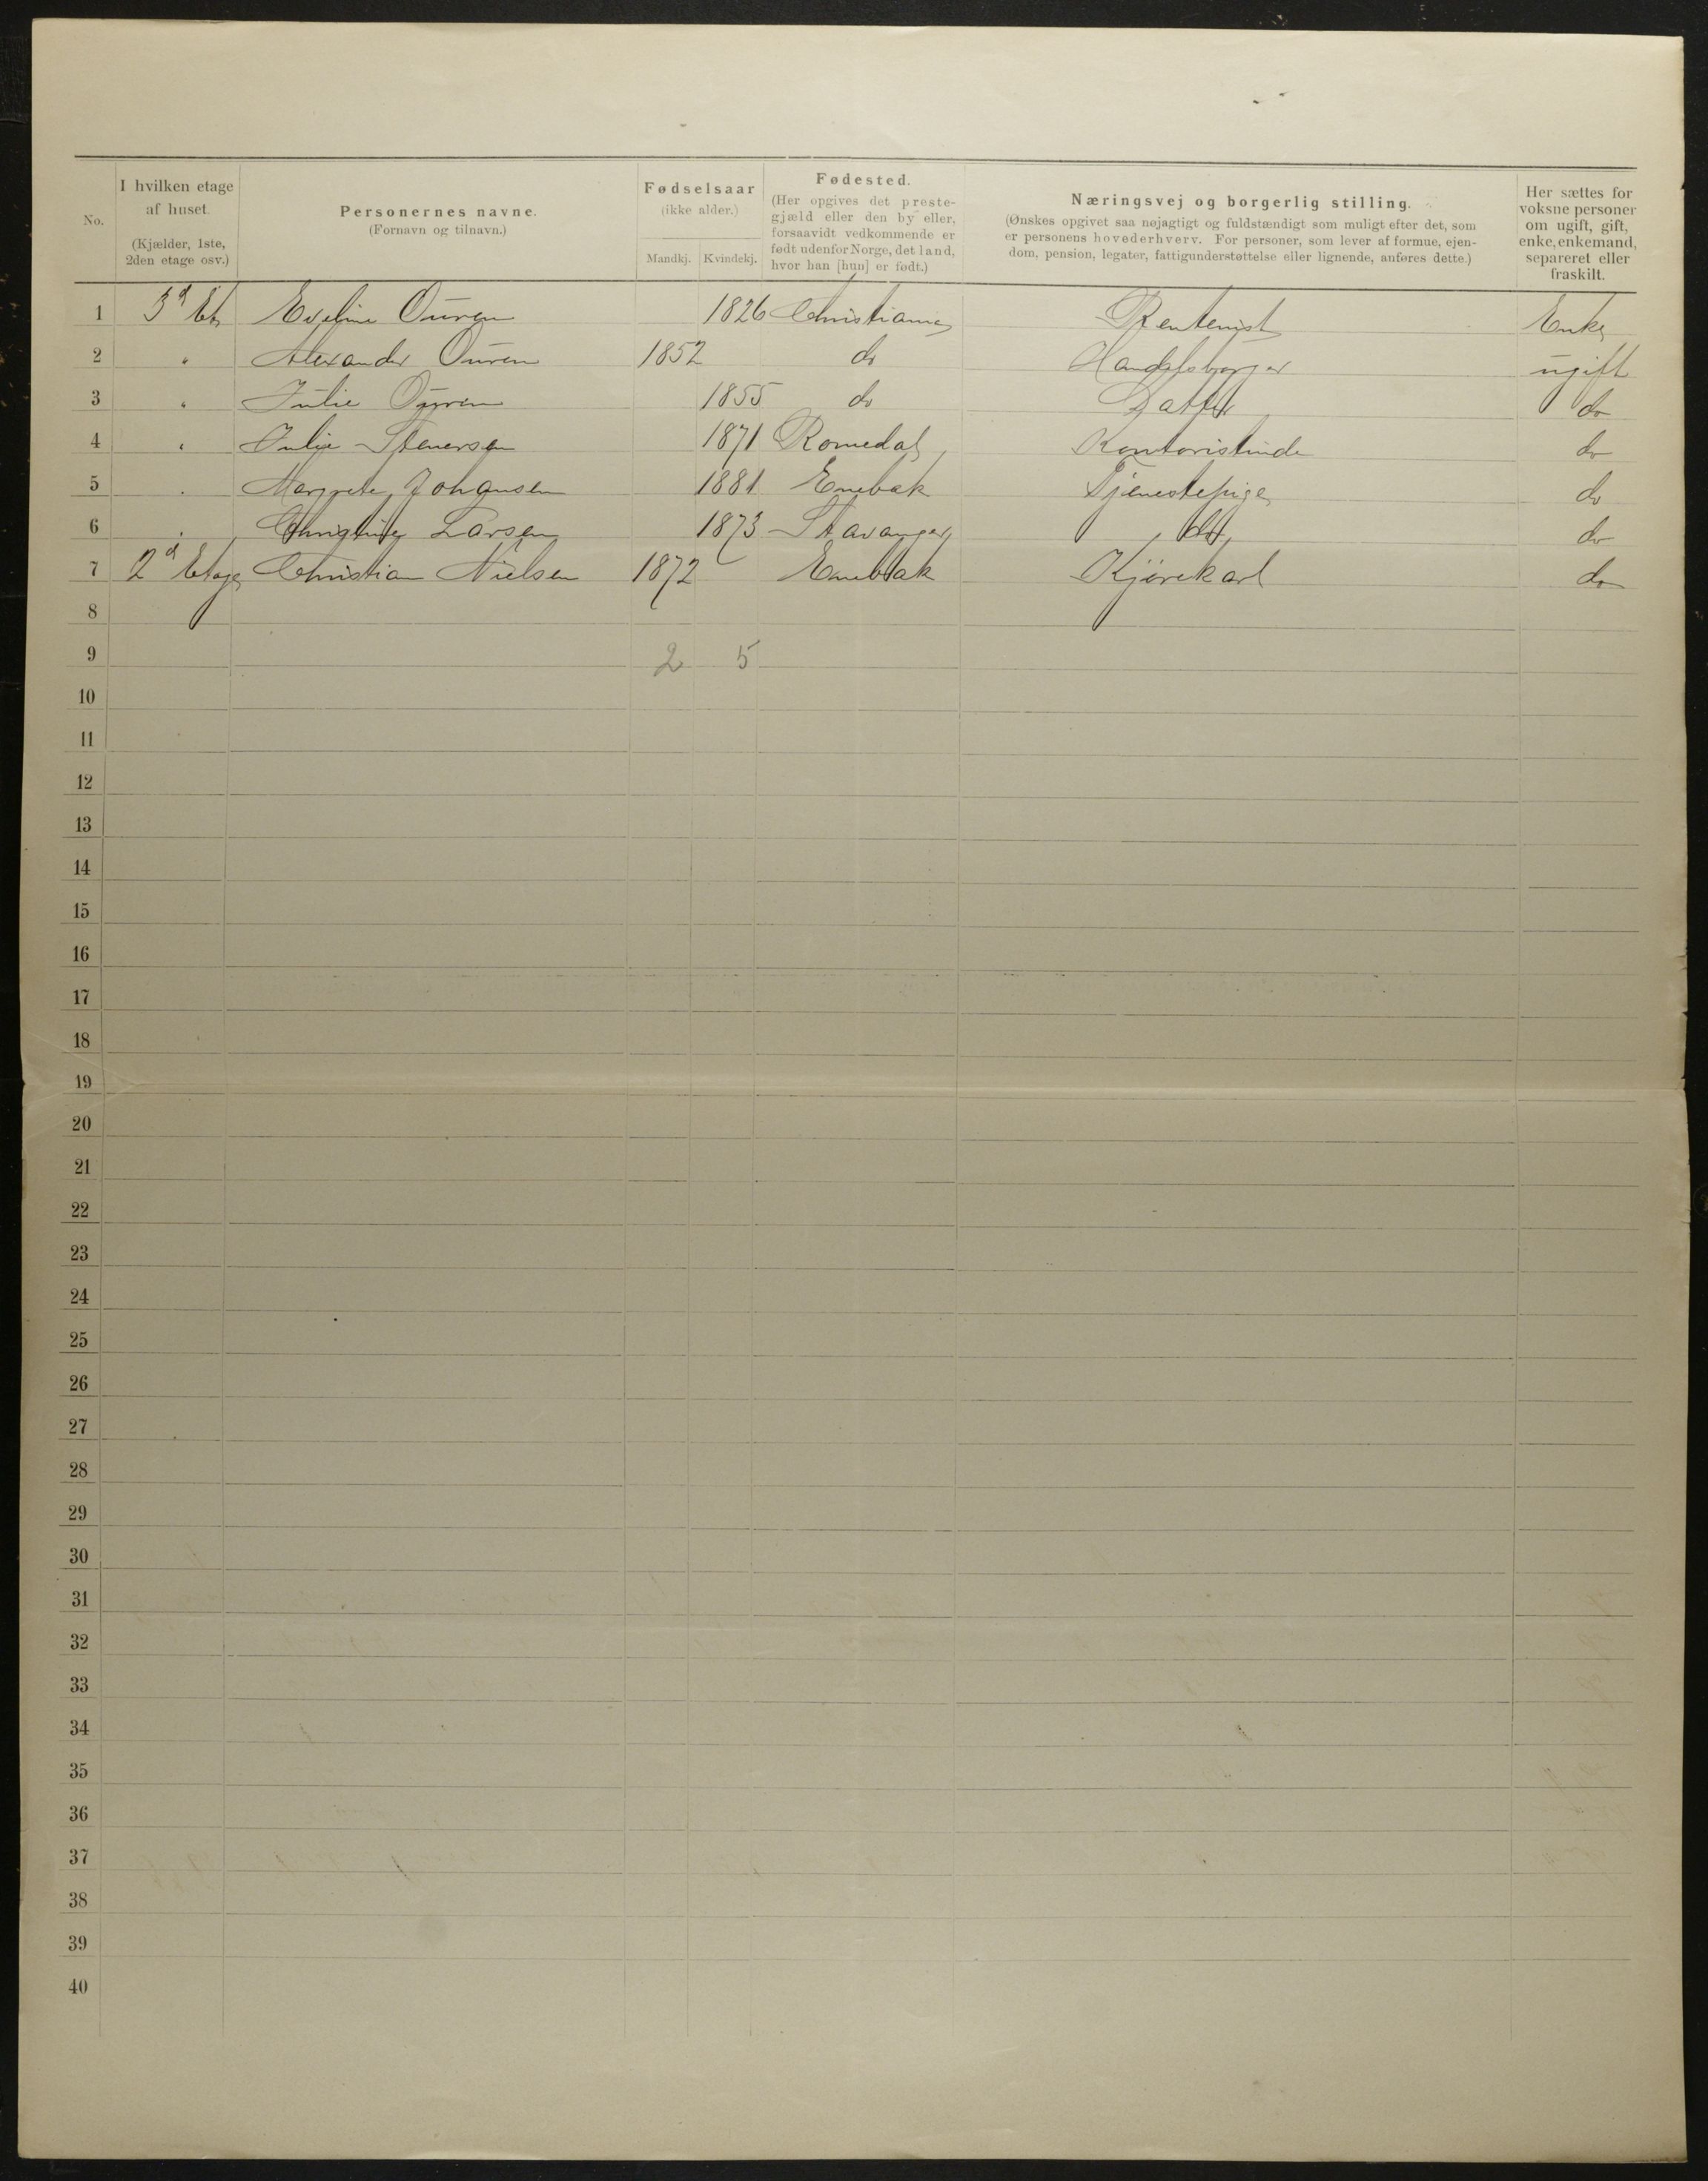 No.
I hvilken etage af huset. (Kjælder, 1ste, 2den etage osv.)
Personernes navne. (Fornavn og tilnavn.)
Fødselsaar (ikke alder.) Mandkj. Kvindekj.
Fødested. (Her opgives det prestegjæld eller den by eller, forsaavidt vedkommende er født udenfor Norge, det land, hvor han [hun] er født.)
Næringsvej og borgerlig stilling. (Ønskes opgivet saa nøjagtigt og fuldstændigt som muligt efter det, som er personens hovederhverv. For personer, som lever af formue, ejendom, pension, legater, fattigunderstøttelse eller lignende, anføres dette.)
Her sættes for voksne personer om ugift, gift, enke, enkemand, separeret eller fraskilt.
1 3d Et. Eveline Ouren 1826 Christiania Rentenist Enke
2 " Alexander Ouren 1852 do Handelsborger ugift
3 " Julie Ouren 1855 do Datter do
4 " Julie Stenersen 1871 Romedal Kontoristinde do
5 " Margrete Johansen 1881 Enebak Tjenestepige do
6 " Larsen 1873 Stavanger do do
7 2d Etage Christian Nielsen 1872 Enebak Kjörekarl do
8
9 2 5
10
11
12
13
14
15
16
17
18
19
20
21
22
23
24
25
26
27
28
29
30
31
32
33
34
35
36
37
38
39
40